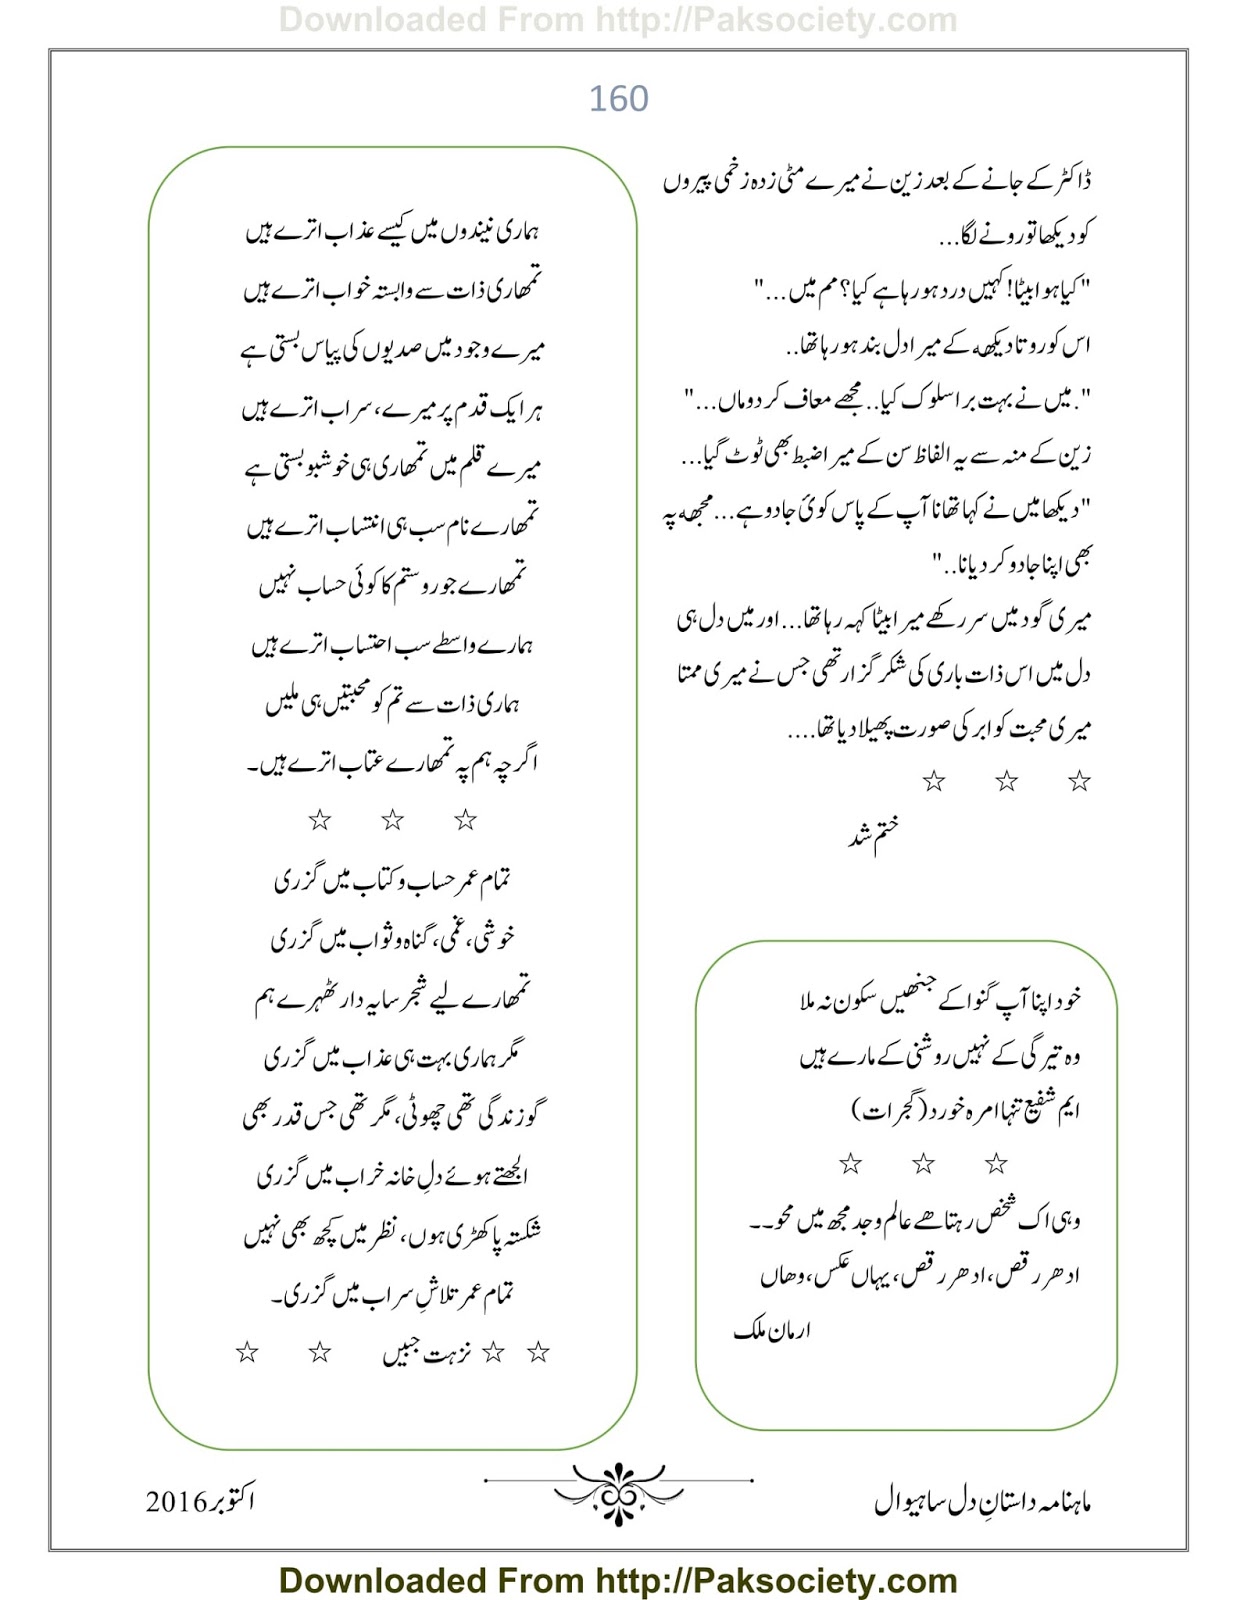 Downloaded From http://Paksociety.com
160
ڈاکٹر کے جانے کے بعد زین نے میرے مٹی زدہ زخمی پیروں
کو دیکھا تو رونے لگا...
"کیا ہوا بیٹا! کہیں درد ہو رہا ہے کیا؟ مم میں..."
اس کو روتا دیکھ کے میرا دل بند ہو رہا تھا..
".میں نے بہت برا سلوک کیا.. مجھے معاف کر دو ماں..."
زین کے منہ سے یہ الفاظ سن کے میرا ضبط بھی ٹوٹ گیا...
"دیکھا میں نے کہا تھا نا آپ کے پاس کوئ جادو ہے... مجھ پہ
بھی اپنا جادو کر دیا نا.."
میری گود میں سر رکھے میرا بیٹا کہہ رہا تھا... اور میں دل ہی
دل میں اس ذات باری کی شکر گزار تھی جس نے میری ممتا
میری محبت کو ابر کی صورت پھیلا دیا تھا....
☆ ☆ ☆
ختم شد
خود اپنا آپ گنوا کے جنھیں سکون نہ ملا
وہ تیرگی کے نہیں روشنی کے مارے ہیں
ایم شفیع تنہا امرہ خورد (گجرات)
☆ ☆ ☆
وہی اک شخص رہتا ھے عالم وجد مجھ میں محو۔۔
ادھر رقص، ادھر رقص، یہاں عکس، وھاں
ارمان ملک
ہماری نیندوں میں کیسے عذاب اترے ہیں
تمھاری ذات سے وابستہ خواب اترے ہیں
میرے وجود میں صدیوں کی پیاس بستی ہے
ہر ایک قدم پر میرے، سراب اترے ہیں
میرے قلم میں تمھاری ہی خوشبو بستی ہے
تمھارے نام سب ہی انتساب اترے ہیں
تمھارے جور و ستم کا کوئی حساب نہیں
ہمارے واسطے سب احتساب اترے ہیں
ہماری ذات سے تم کو محبتیں ہی ملیں
اگرچہ ہم پہ تمھارے عتاب اترے ہیں۔
☆ ☆ ☆
تمام عمر حساب و کتاب میں گزری
خوشی، غمی، گناہ و ثواب میں گزری
تمھارے لیے شجر سایہ دار ٹھہرے ہم
مگر ہماری بہت ہی عذاب میں گزری
گو زندگی تھی چھوٹی، مگر تھی جس قدر بھی
الجھتے ہوئے دلِ خانہ خراب میں گزری
شکستہ پا کھڑی ہوں، نظر میں کچھ بھی نہیں
تمام عمر تلاشِ سراب میں گزری۔
☆ ☆ نزہت جبیں ☆ ☆
ماہنامہ داستانِ دل ساہیوال
اکتوبر 2016
Downloaded From http://Paksociety.com